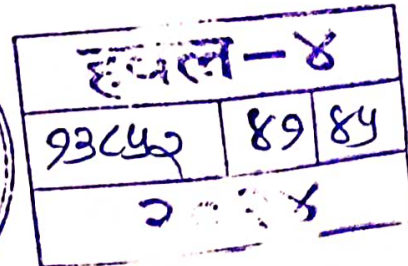 हवल-४
१३८५२ ४१ ४५
२०२४